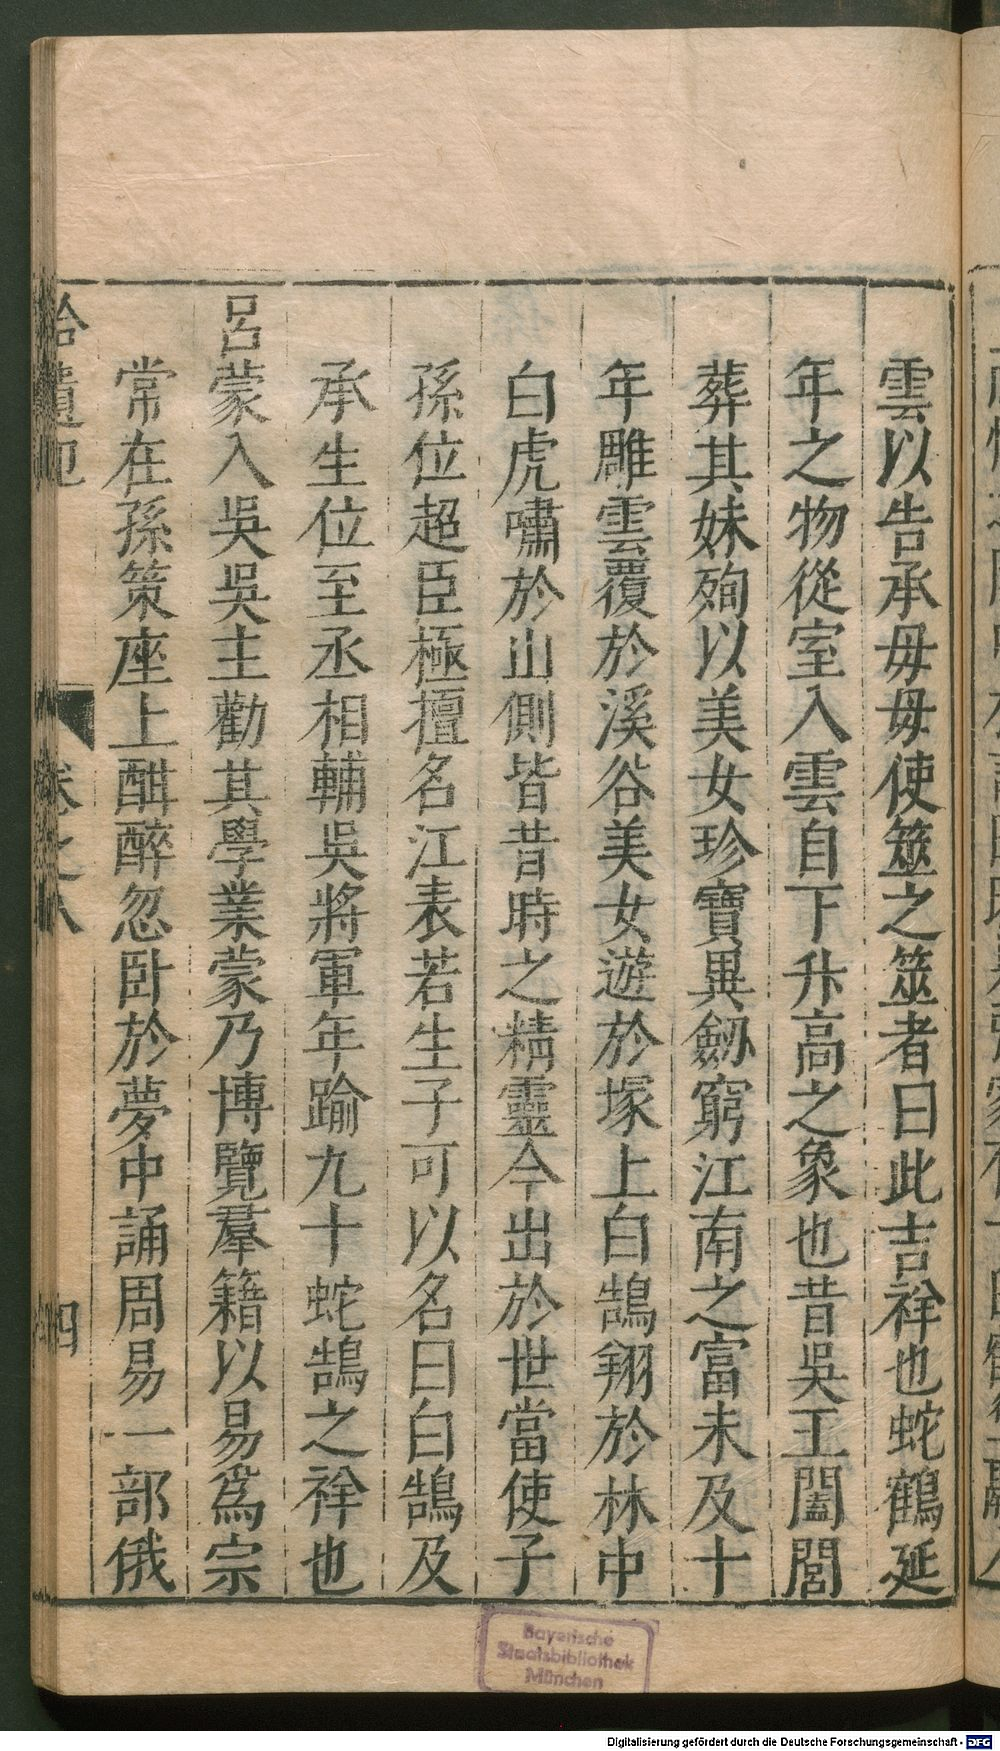 雲以告承母母使筮之筮者曰此吉祥也蛇鶴延
年之物從室入雲自下升高之象也昔吳王闔閭
葬其妹殉以美女珍寶異劒窮江南之富未及十
年雕雲覆於溪谷美女遊於塚上白鵠翔於林中
白虎嘯於山側皆昔時之精靈今出於世當使子
孫位超臣極擅名江表若生子可以名曰白鵠及
承生位至丞相輔吳將軍年踰九十蛇鵠之祥也
呂蒙入吳吳主勸其學業蒙乃博覽羣籍以易爲宗
常在孫策座上酣醉忽臥於夢中誦周易一部俄
拾遺記 卷之八 四
Bayerische
Staatsbibliothek
München
Digitalisierung gefördert durch die Deutsche Forschungsgemeinschaft - DFG